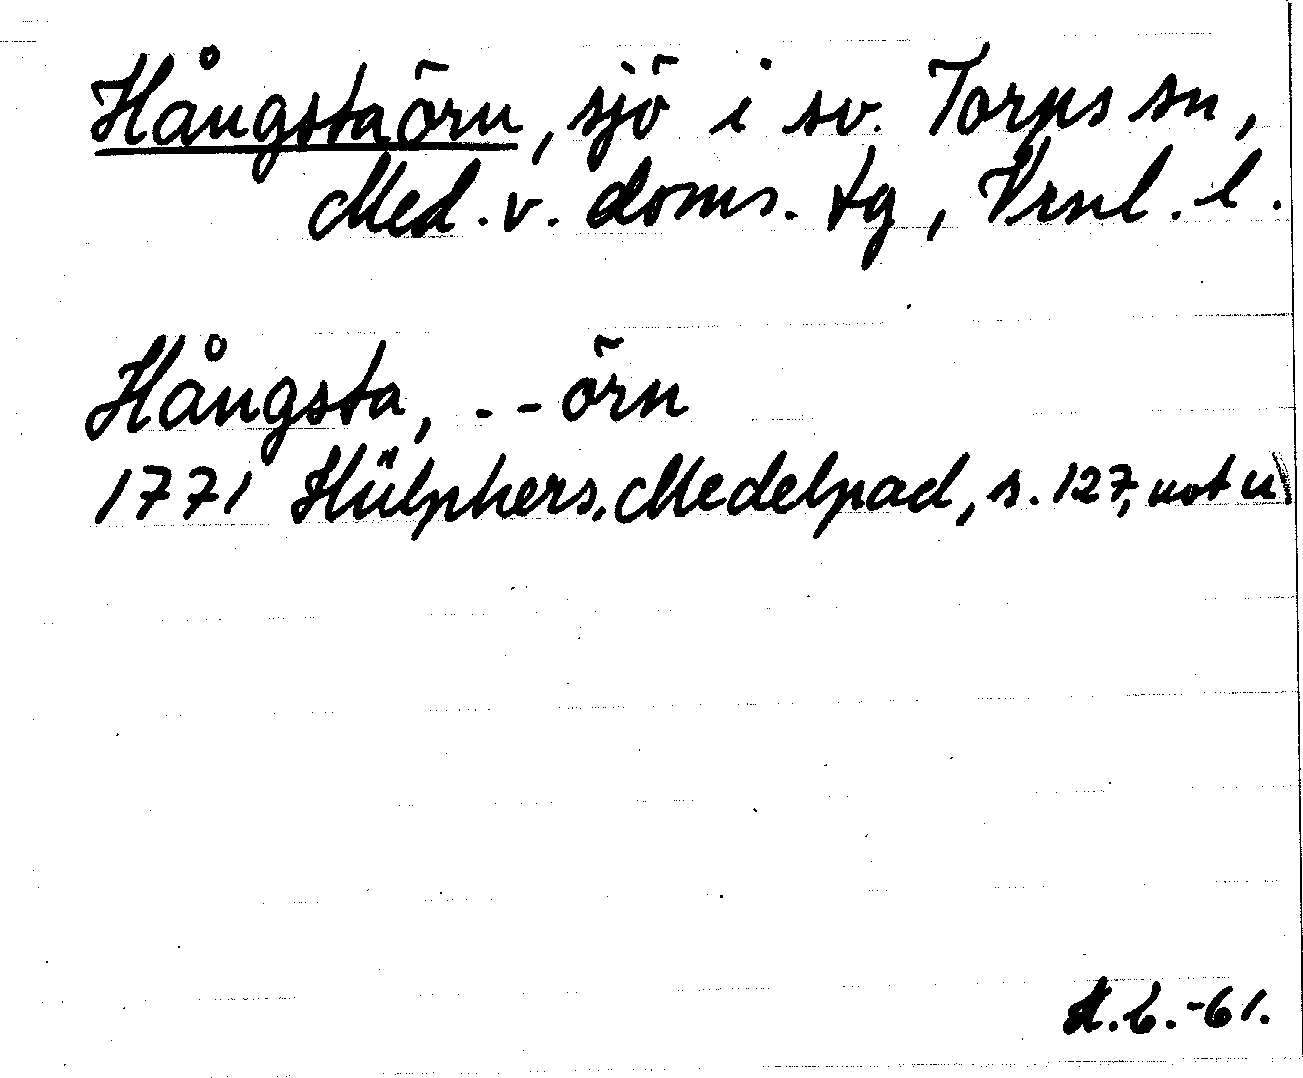 Hångstaörn, sjö i sv. Torps sn,
Med. v. doms. tg, Vrnl. l.
Hångsta, - - örn
1771 Hülphers. Medelpad, s. 127, not u
-61.